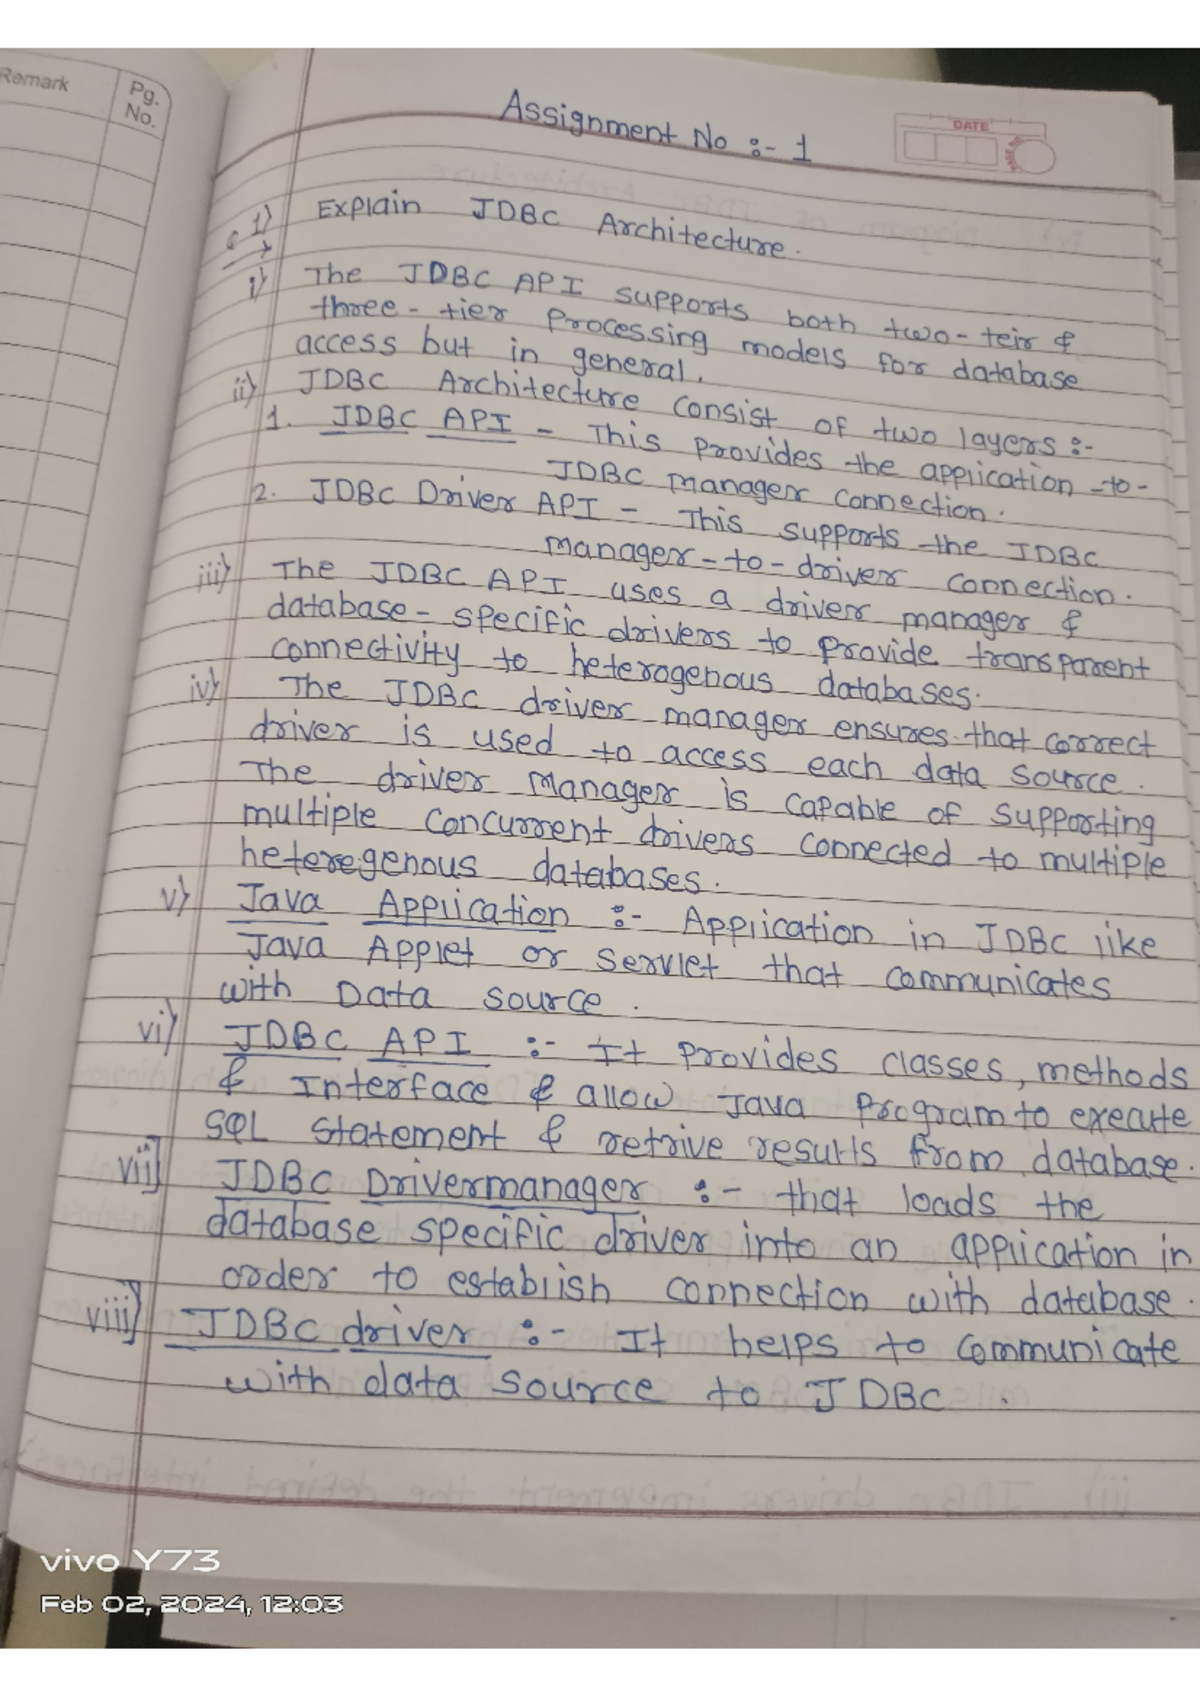 Remark
Pg.
No.
Assignment No :- 1
DATE
1) Explain JDBC Architecture.
i) The JDBC API supports both two-teir &
three-tier Processing models for database
access but in general.
ii) JDBC Architecture consist of two layers :-
1. JDBC API - This provides the application-to-
JDBC manager connection.
2. JDBC Driver API - This supports the JDBC
manager-to-driver connection.
iii) The JDBC API uses a driver manager &
database-specific drivers to provide transparent
connectivity to heterogenous databases.
iv) The JDBC driver manager ensures that correct
driver is used to access each data source.
The driver manager is capable of supporting
multiple concurrent drivers connected to multiple
heteregenous databases.
v) Java Application :- Application in JDBC like
Java Applet or Servlet that communicates
with Data source.
vi) JDBC API :- It provides classes, methods
& Interface & allow Java Program to execute
SQL Statement & retrive results from database.
vii] JDBC Drivermanager :- that loads the
database specific driver into an application in
order to establish connection with database.
viii] JDBC driver :- It helps to communicate
with data source to JDBC.
vivo Y73
Feb 02, 2024, 12:03